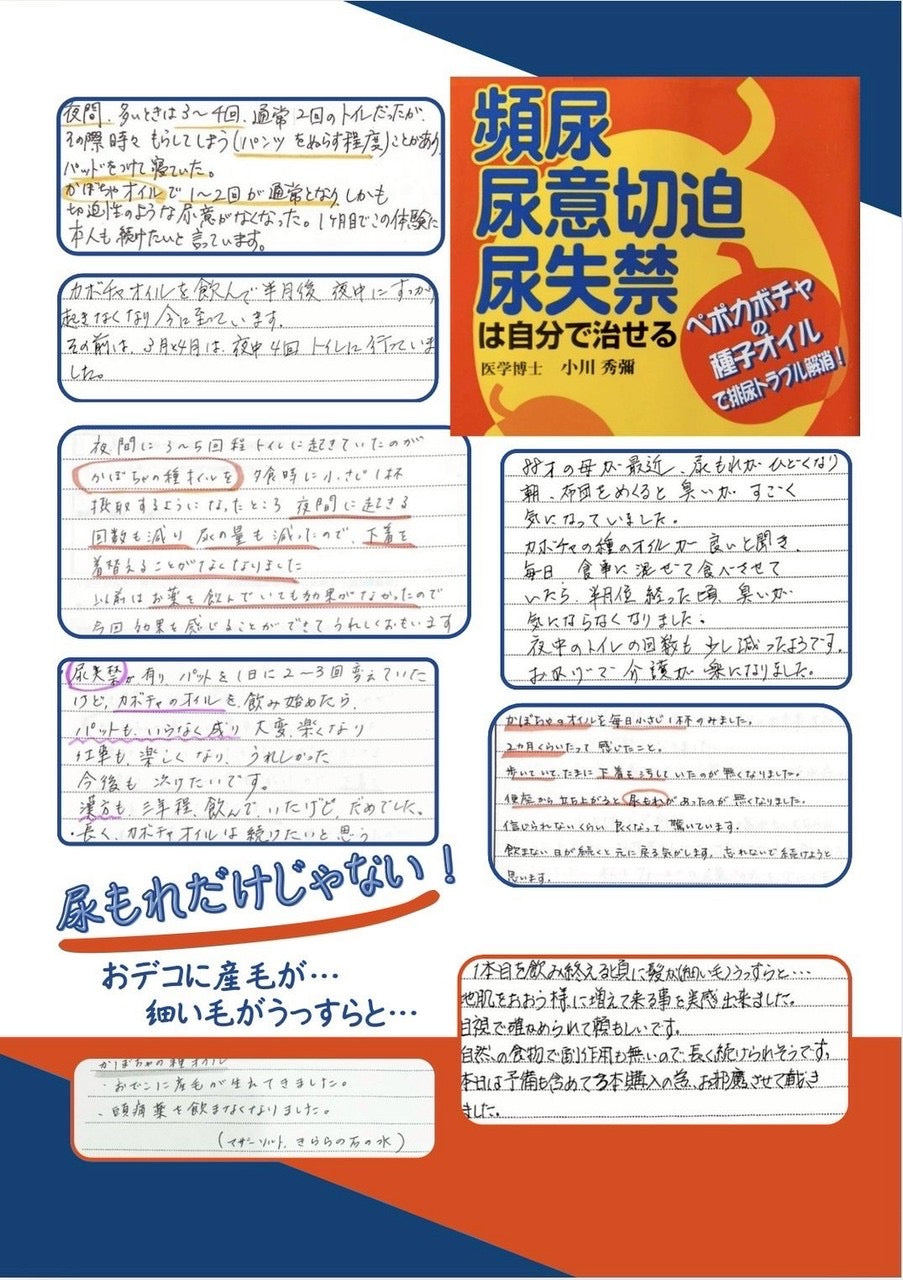 夜間、多いときは3〜4回、通常2回のトイレだったが、
その際時々もらしてしまう(パンツをぬらす程度)ことがあり、
パッドをつけて寝ていた。
かぼちゃオイルで1〜2回が通常となり、しかも
切迫性のような尿意がなくなった。1ヶ月目でこの体験に
本人も続けたいと言っています。
カボチャオイルを飲んで半月後 夜中にすっかり
起きなくなり今に至っています。
その前は、3月と4月は、夜中4回トイレに行っていま
した。
夜間に3〜5回程トイレに起きていたのが
かぼちゃの種オイルを 夕食時に小さじ1杯
摂取するようになったところ 夜間に起きる
回数も減り 尿の量も減ったので、下着を
着替えることがなくなりました
以前はお薬を飲んでいても効果がなかったので
今回効果を感じることができてうれしくおもいます
・尿失禁が有り、パットを1日に2〜3回変えていた
けど、カボチャのオイルを、飲み始めたら、
パットも、いらなく成り 大変、楽くなり
仕事も、楽しくなり、うれしかった
今後も 次けたいです。
漢方も、三年程、飲んでいたけど、だめでした。
・長く、カボチャオイルは続けたいと思う
頻尿
尿意切迫
尿失禁
は自分で治せる
医学博士 小川 秀彌
ペポカボチャ
の
種子オイル
で排尿トラブル解消!
88才の母が最近、尿もれがひどくなり
朝、布団をめくると 臭いが すごく
気になっていました。
カボチャの種のオイルが 良いと聞き、
毎日 食事に混ぜて食べさせて
いたら、半月位 経った頃、臭いが
気にならなくなりました。
夜中のトイレの回数も少し減ったようです。
おかげで 介護が 楽になりました。
かぼちゃのオイルを毎日小さじ1杯のみました。
2カ月くらいたって 感じたこと。
歩いていて、たまに下着を汚していたのが無くなりました。
便座から立ち上がると 尿もれがあったのが無くなりました。
信じられないくらい 良くなって 驚いています。
飲まない日が続くと元に戻る気がします。忘れないで続けようと
思います。
尿もれだけじゃない!
おデコに産毛が…
細い毛がうっすらと…
1本目を飲み終える頃に髪が(細い毛)うっすらと…
地肌をおおう様に増えて来る事を実感出来ました。
目視で確かめられて頼もしいです。
自然の食物で副作用も無いので長く続けられそうです。
本日は予備も含めて3本購入の為、お邪魔させて戴き
ました。
かぼちゃの種オイル
・おでこに産毛が生えてきました。
・頭痛薬を飲まなくなりました。
(マザーソルト、きららの石の水)